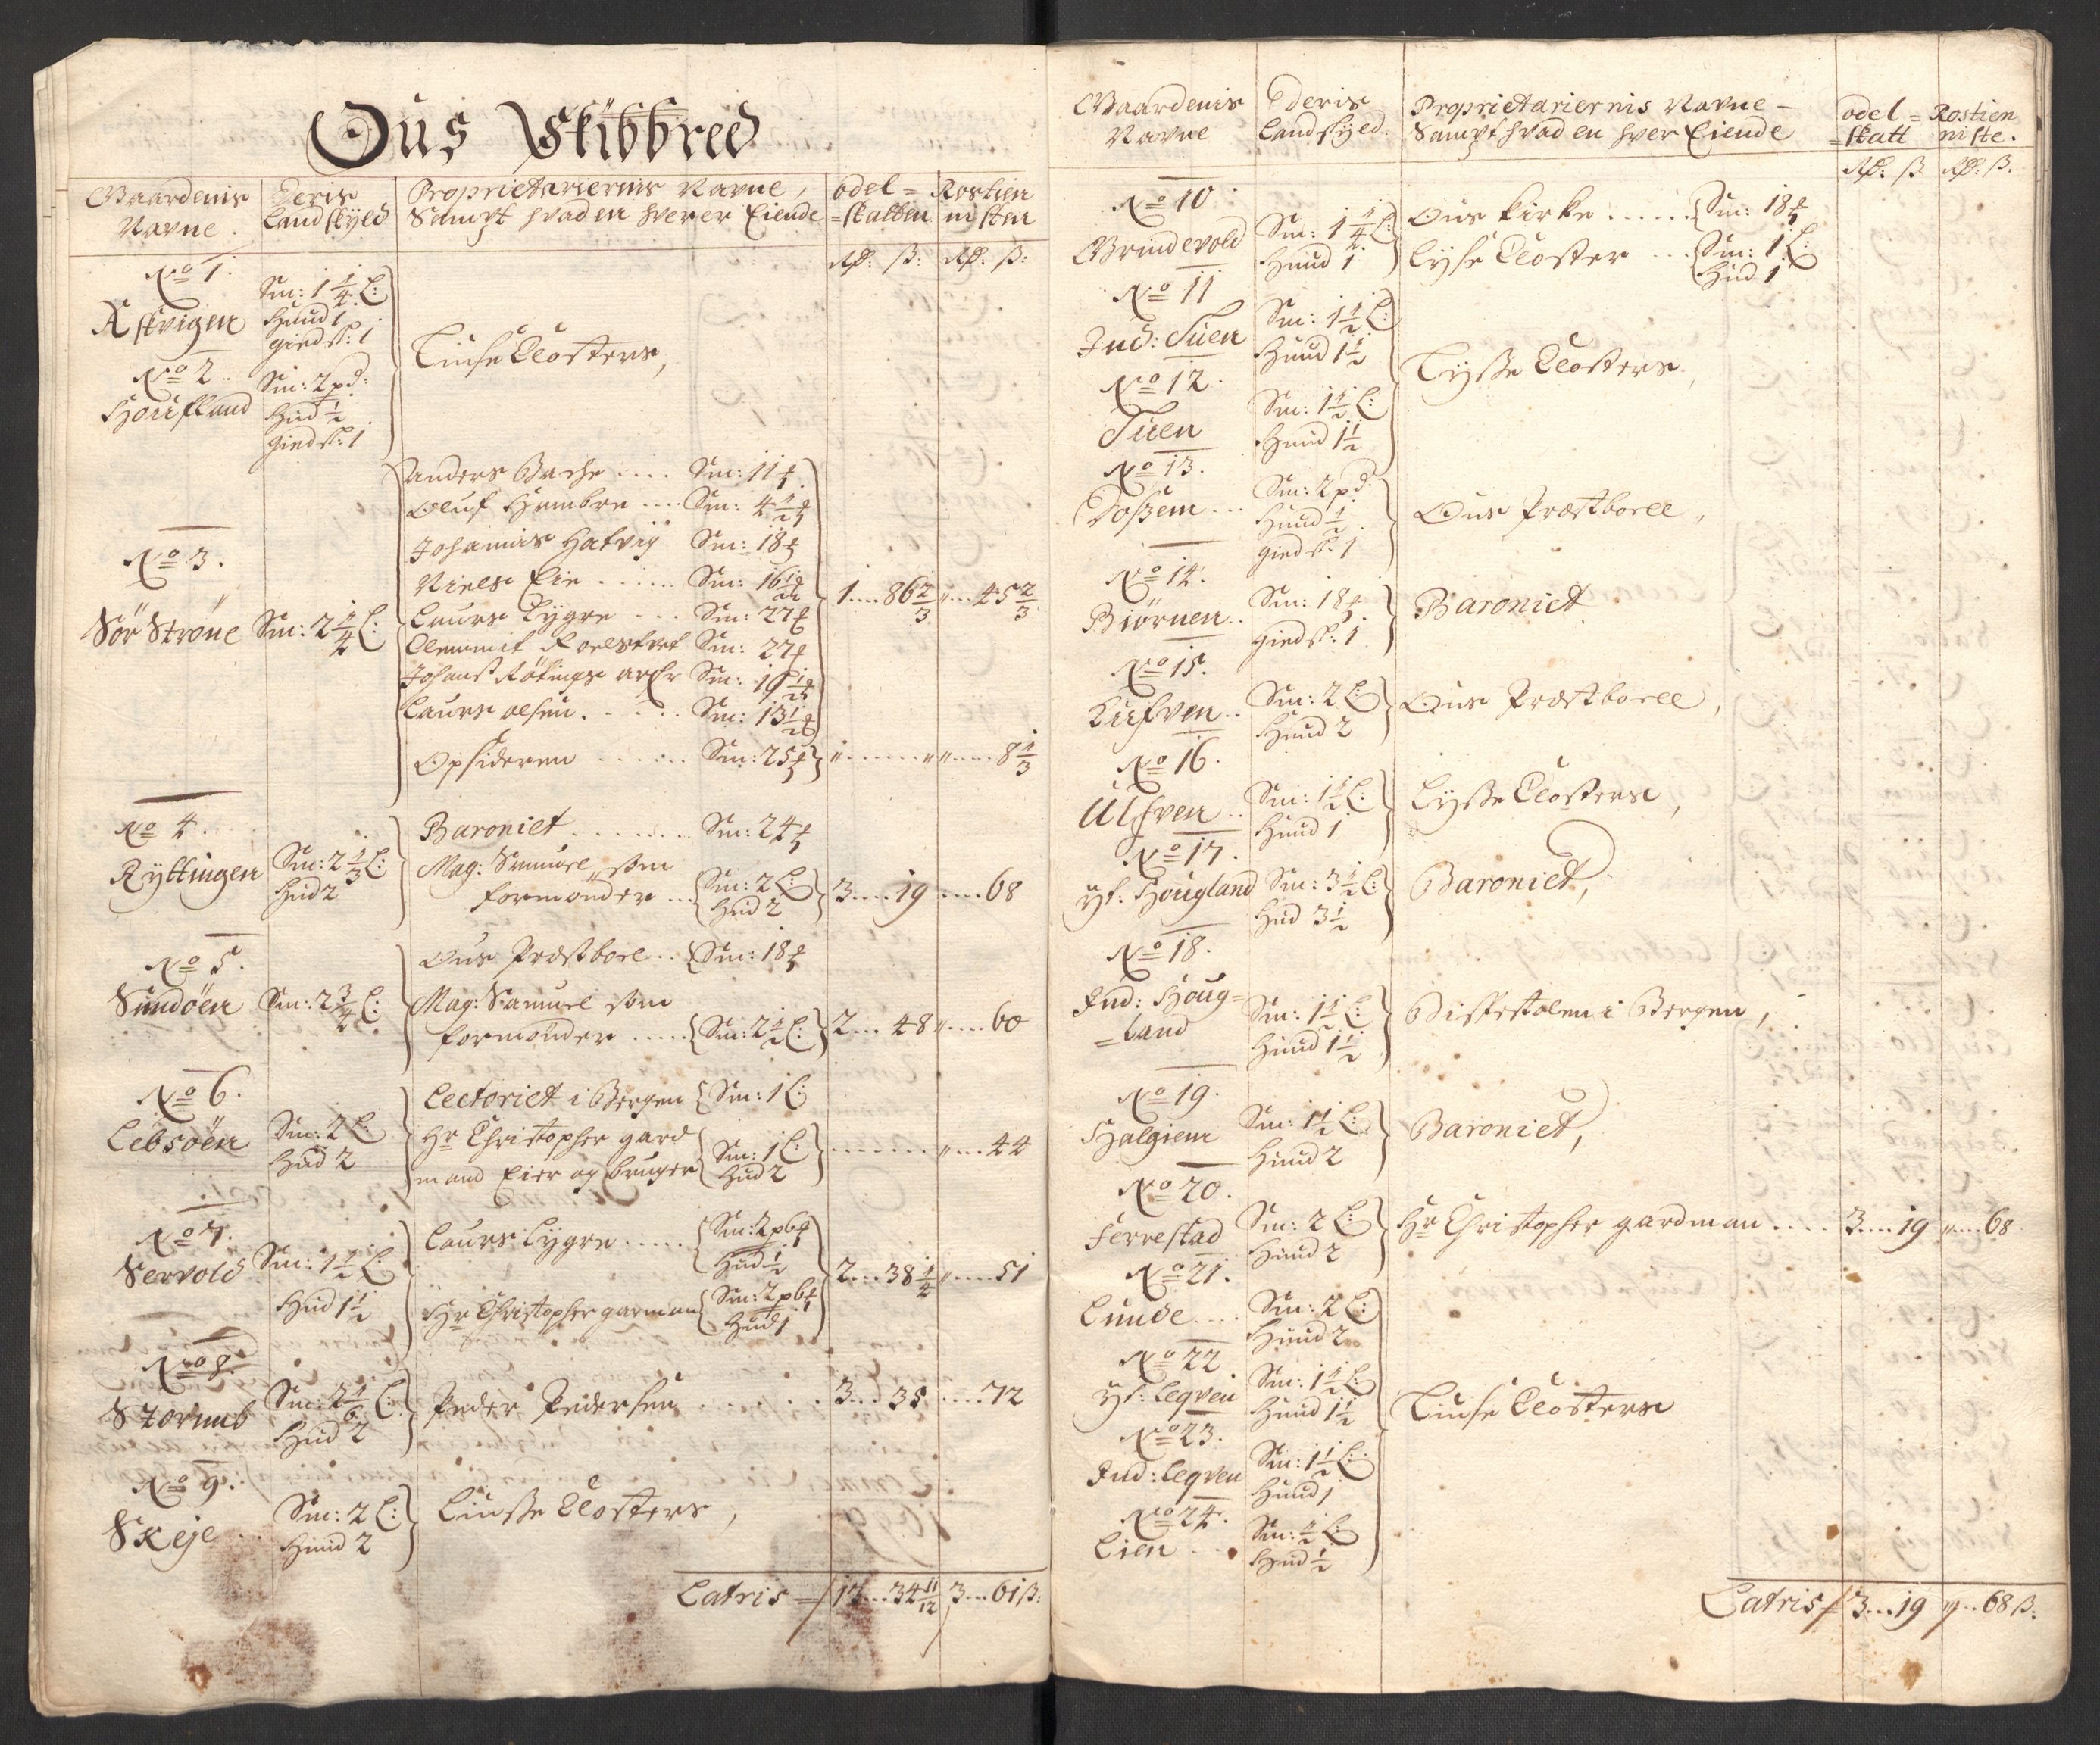 Ous Skibbred
Gaardenis Navne.
Deris Landskyld
Proprietariernis Navne, Sampt hvad en hver er Eiende
odel= =skatten
Rostien nisten
Rd: ß: Rd: ß:
No 1.
Askvigen
Sm: 1 1/4 L:
Huud 1
giedsk: 1
Liuse Closters,
No 2.
Houfland
Sm: 2 pd:
Hud 1/2
giedsk: 1
No 3.
Sör Ströne Sm: 2 1/4 L:
Anders Bache .... Sm: 11
Oluf Hambre .... Sm: 4 1/2
Johannis Hatvig Sm: 18
Niels Eie ...... Sm: 16 1/2
Laurs Lygre ... Sm: 27
Sm: 27
Sm: 19 1/2
Laurs olsen ..... Sm: 13 1/2
1 .... 86 2/3 „ ... 45 2/3
Opsideren ...... Sm: 25 „ ...... „ „ .... 8 1/3
No 4.
Ryttingen
Sm: 2 1/3 L:
Hud 2
Baroniet ....... Sm: 24
Mag: Samuel som
formönder ... Sm: 2 L: Hud 2 3 .... 19 .... 68
No 5.
Sundöen Sm: 2 3/4 L:
Ous Præstbole .. Sm: 18
Mag: Samuel som
formönder ..... Sm: 2 1/2 L: 2 ... 48 „ .... 60
No 6.
Lebsöen
Sm: 2 L:
Hud 2
Lectoriet i Bergen Sm: 1 L:
Hr Christopher gard
mand Eier og bruger Sm: 1 L: Hud 2 ....... „ ... 44
No 7.
Servold
Sm: 1 1/2 L:
Hud 1 1/2
Laurs Lygre ..... Sm: 2 pb
Hud 1/2
Hr Christopher garman Sm: 2 pb
Hud 1
2 ... 38 1/4 „ .... 51
No 8.
Storumb
Sm: 2 1/6 L:
Hud 2
Peder Pedersen ...... 3 ... 35 .... 72
No 9.
Skeje
Sm: 2 L:
Huud 2
Liusse Closters,
Latris 13 ... 34 11/12 3 ... 61 ß:
Gaardenis Navne
Deris Landskyld.
Proprietariernis Navne - Sampt hvad en hver Eiende
odel = =skatt
Rostien niste.
Rd: ß Rd: ß.
No 10
Grindevold
Sm: 1 1/4 L:
Huud 1
Ous kirke ...... Sm: 18
Lyse Closter ... Sm: 1 L:
Hud 1
No 11
Ind: Tuen
Sm: 1 1/2 L:
Huud 1 1/2
Lysse Closters,
No 12.
Tuen
Sm: 1 1/2 L:
Huud 1 1/2
No 13.
Dossem ...
Sm: 2 pd:
Huud 1/2
giedsk: 1
Ous Præstbolle,
No 14.
Biörnen ..
Sm: 18
giedsk: 1
Baroniet
No 15.
Kuksven ..
Sm: 2 L:
Huud 2
Ous Præstbolle,
No 16.
Ulsven ..
Sm: 1 1/2 L:
Huud 1
Lysse Closters,
No 17.
yt: Hougland
Sm: 3 1/2 L:
Hud 3 1/2
Baroniet,
No 18.
Ind: Houg= =land
Sm: 1 1/2 L:
Huud 1 1/2
Bispestolen i Bergen,
No 19.
Halgiem
Sm: 1 1/2 L:
Huud 2
Baroniet,
No 20.
Ferrestad
Sm: 2 L:
Huud 2
Hr Christopher gardman .... 3 ... 19 „ ... 68
No 21.
Lunde ....
Sm: 2 L:
Huud 2
No 22
yt: Legven
Sm: 1 1/2 L:
Huud 1 1/2
Liuse Closters
No 23.
Ind: Legven
Sm: 1 1/2 L:
Huud 1
No 24.
Lien ...
Sm: 1/2 L:
Hud 1/2
Latris 3 ... 19 „ ... 68 ß: